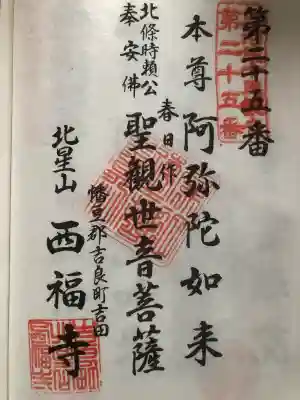 第二十五番
第二十五番
本尊 阿弥陀如来
春日作
北條時頼公
奉安佛
聖觀世音菩薩
幡豆郡吉良町吉田
北星山 西福寺